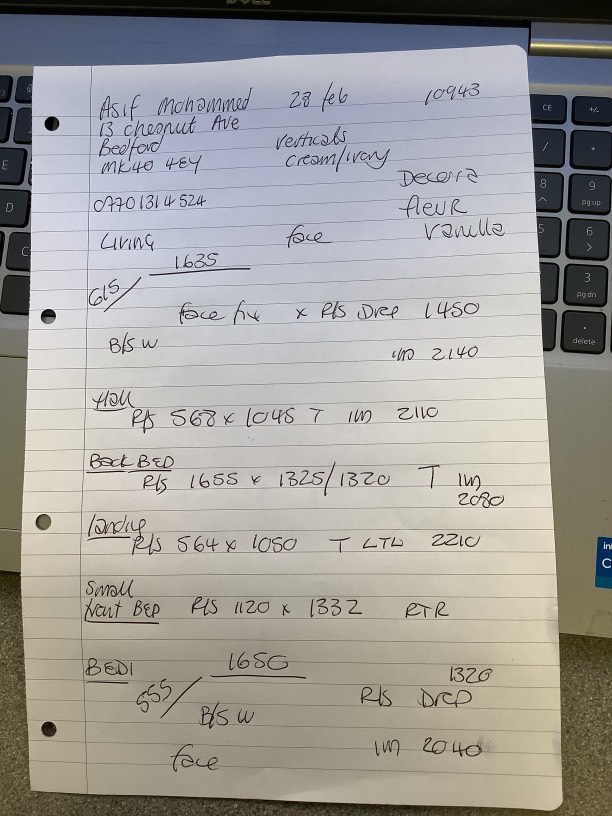 DELL
Asif Mohammed 28 feb 10943
13 chesnut Ave
Bedford verticals
MK40 4EY cream/ivory
Decora
07701314524 fleur
Living face vanilla
1635
615/
face fix x R/S Drop 1450
B/S W 1m 2140
Hall
R/S 568 x 1045 T 1m 2110
Back BED
R/S 1655 x 1325/1320 T 1m
2080
landing
R/S 564 x 1050 T LTL 2210
Small
front BED R/S 1120 x 1332 RTR
BED1 1650 1320
555/ R/S Drop
B/S W
face 1m 2040